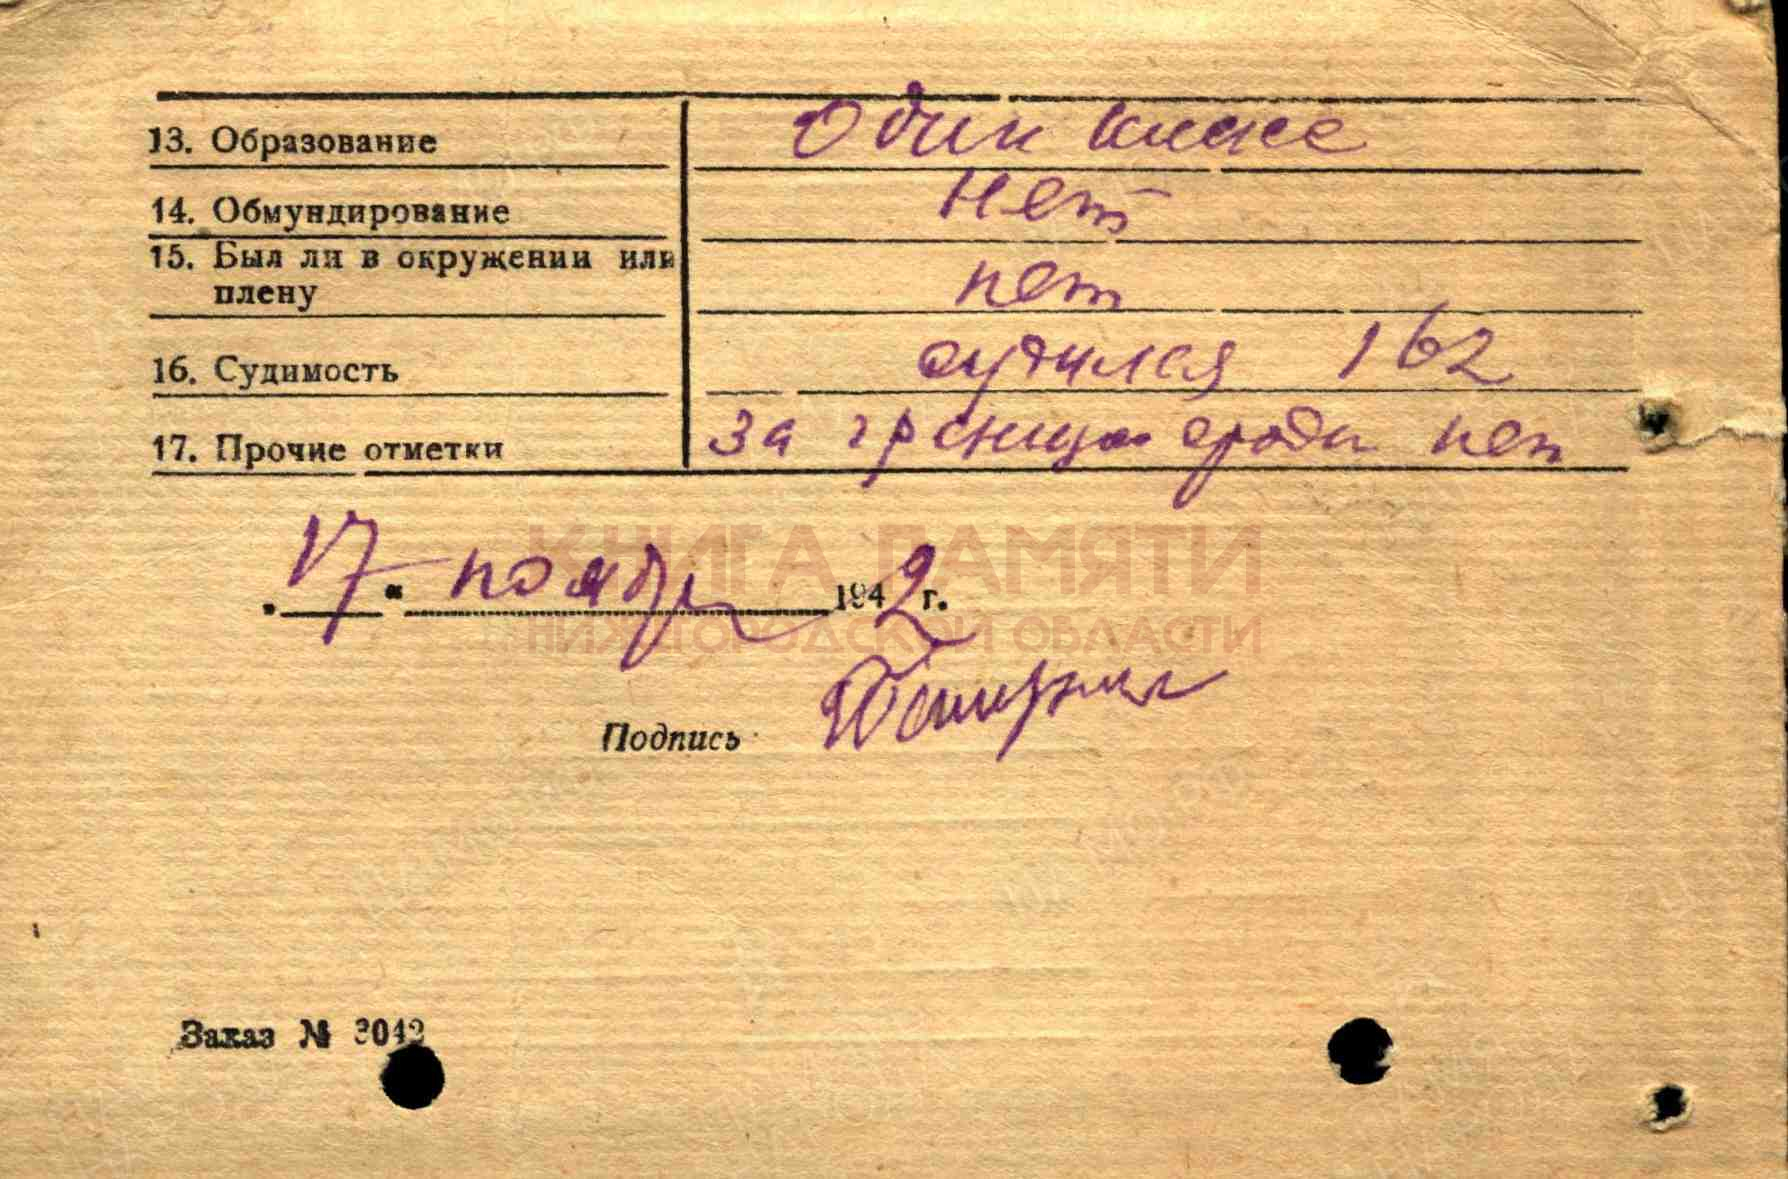 13. Образование Один класс
14. Обмундирование Нет
15. Был ли в окружении или
плену нет
16. Судимость судился 162
17. Прочие отметки за границей родн нет
КНИГА ПАМЯТИ
"17" ноября 1942 г.
НИЖЕГОРОДСКОЙ ОБЛАСТИ
Подпись
Заказ № 3042